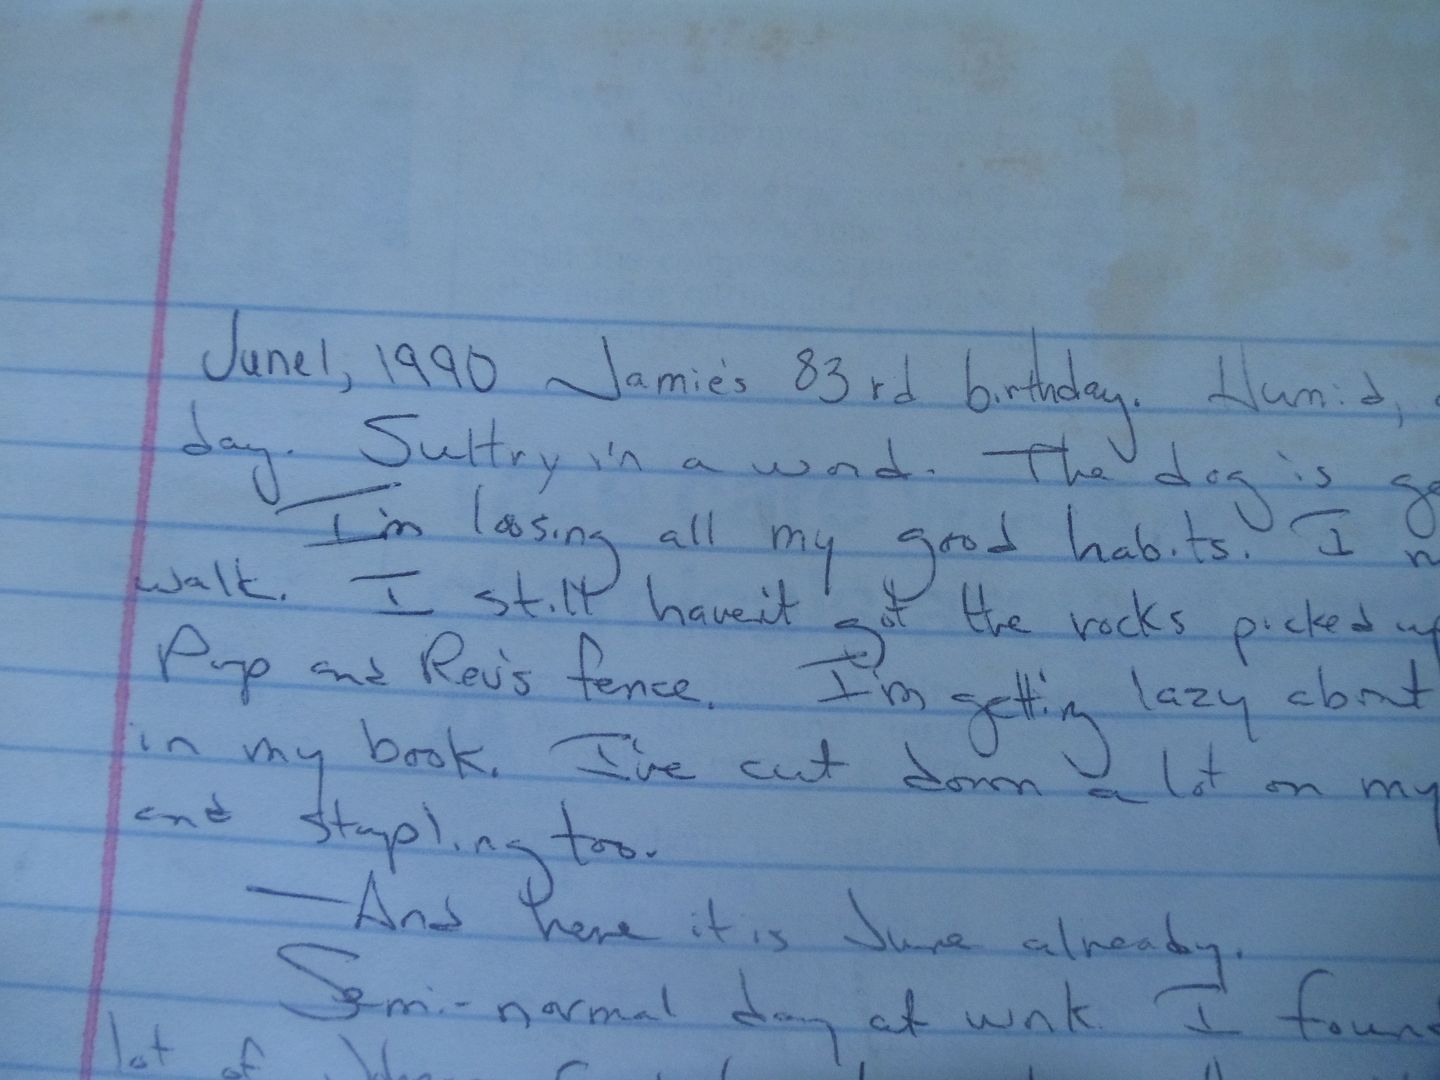 June 1, 1990 Jamie's 83rd birthday. Humid,
day. Sultry in a word. The dog is
I'm loosing all my good habits. I
walk. I still haven't got the rocks picked up
Pup and Rev's fence. I'm getting lazy about
in my book. I've cut down a lot on my
and stapling too.
—And here it is June already.
Semi-normal day at work. I found
lot of